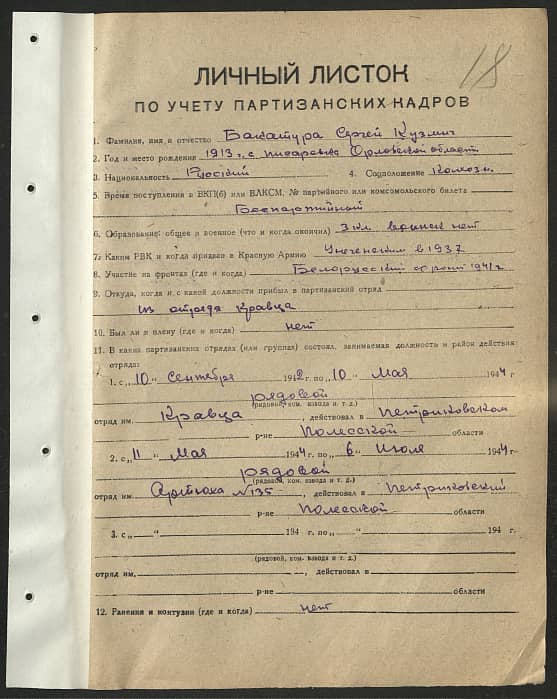 18
ЛИЧНЫЙ ЛИСТОК
ПО УЧЕТУ ПАРТИЗАНСКИХ КАДРОВ
1. Фамилия, имя и отчество Бакатура Сергей Кузмич
2. Год и место рождения 1913 г. с. Писаревка Орловской области
3. Национальность Руский 4. Соцположение Колхозн.
5. Время поступления в ВКП(б) или ВЛКСМ, № партийного или комсомольского билета
Беспартийный
6. Образование: общее и военное (что и когда окончил) 3 кл. воинск нет
7. Каким РВК и когда призван в Красную Армию Унеченским в 1937
8. Участие на фронтах (где и когда) Белорусский фронт 1941 г
9. Откуда, когда и с какой должности прибыл в партизанский отряд
из отряда Кравца
10. Был ли в плену (где и когда) нет
11. В каких партизанских отрядах (или группах) состоял, занимаемая должность и район действия
отряда:
1. с „10“ Сентября 1942 г. по „10“ Мая 1944 г
рядовой
(рядовой, ком. взвода и т. д.)
отряд им. Кравца, действовал в Петриковском
р-не Полесской области
2. с „11“ Мая 1944 г. по „6“ Июля 1944 г.
рядовой
(рядовой, ком. взвода и т. д.)
отряд им. №135, действовал в Петриковский
р-не Полесской области
3. с „ “ 194 г. по „ “ 194 г.
(рядовой, ком. взвода и т. д.)
отряд им. , действовал в
р-не области
12. Ранения и контузии (где и когда) нет